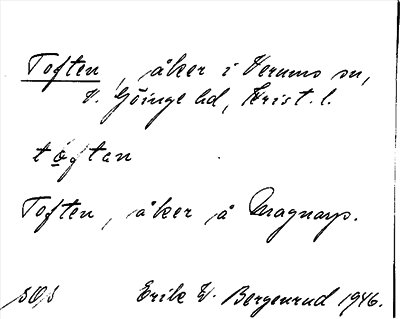 Toften, åker i Verums sn,
V. Göinge hd, Krist. l.
tọftan
Toften, åker å Magnarp.
Erik W. Bergenrud 1946.